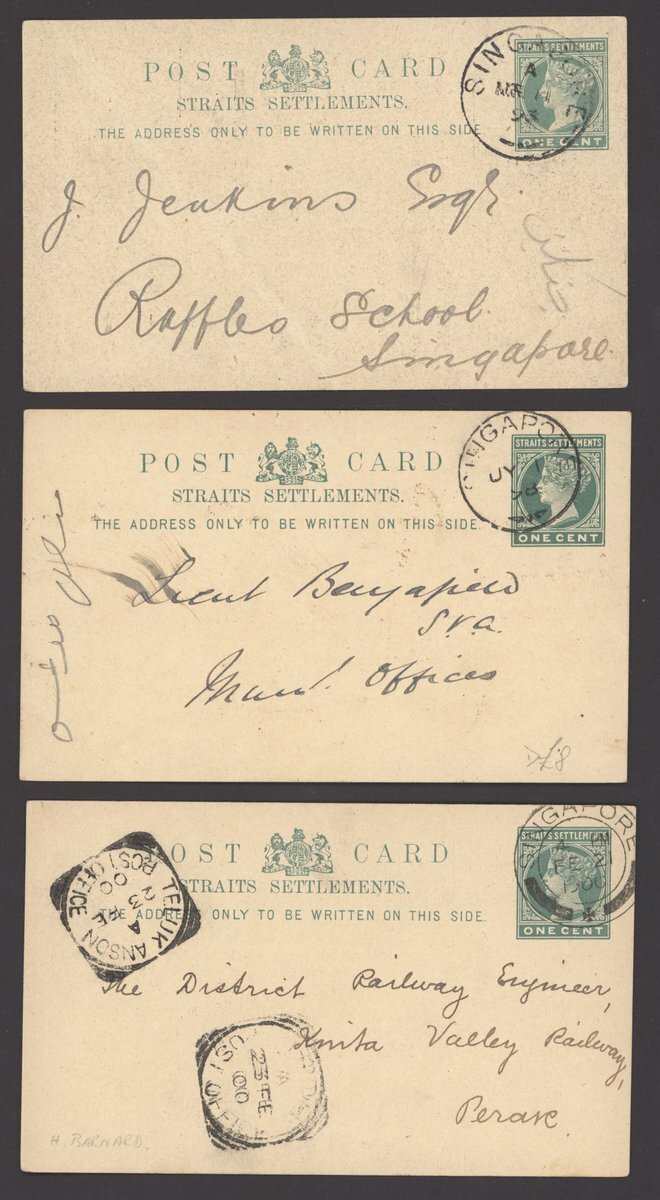 POST CARD
STRAITS SETTLEMENTS.
THE ADDRESS ONLY TO BE WRITTEN ON THIS SIDE
STRAITS SETTLEMENTS
ONE CENT
A
J. Jenkins Esqr
Raffles School
Singapore
POST CARD
STRAITS SETTLEMENTS.
THE ADDRESS ONLY TO BE WRITTEN ON THIS SIDE.
SINGAPORE
JY 1
98
STRAITS SETTLEMENTS
ONE CENT
Lieut Benyafield
S.V.A.
Muni. Offices
POST CARD
STRAITS SETTLEMENTS.
THE ADDRESS ONLY TO BE WRITTEN ON THIS SIDE.
SINGAPORE
1900
STRAITS SETTLEMENTS
ONE CENT
TELUK ANSON
POST OFFICE
A
23 FE
00
The District Railway Engineer,
Kinta Valley Railway,
Perak.
23 FE
00
H. BARNARD.